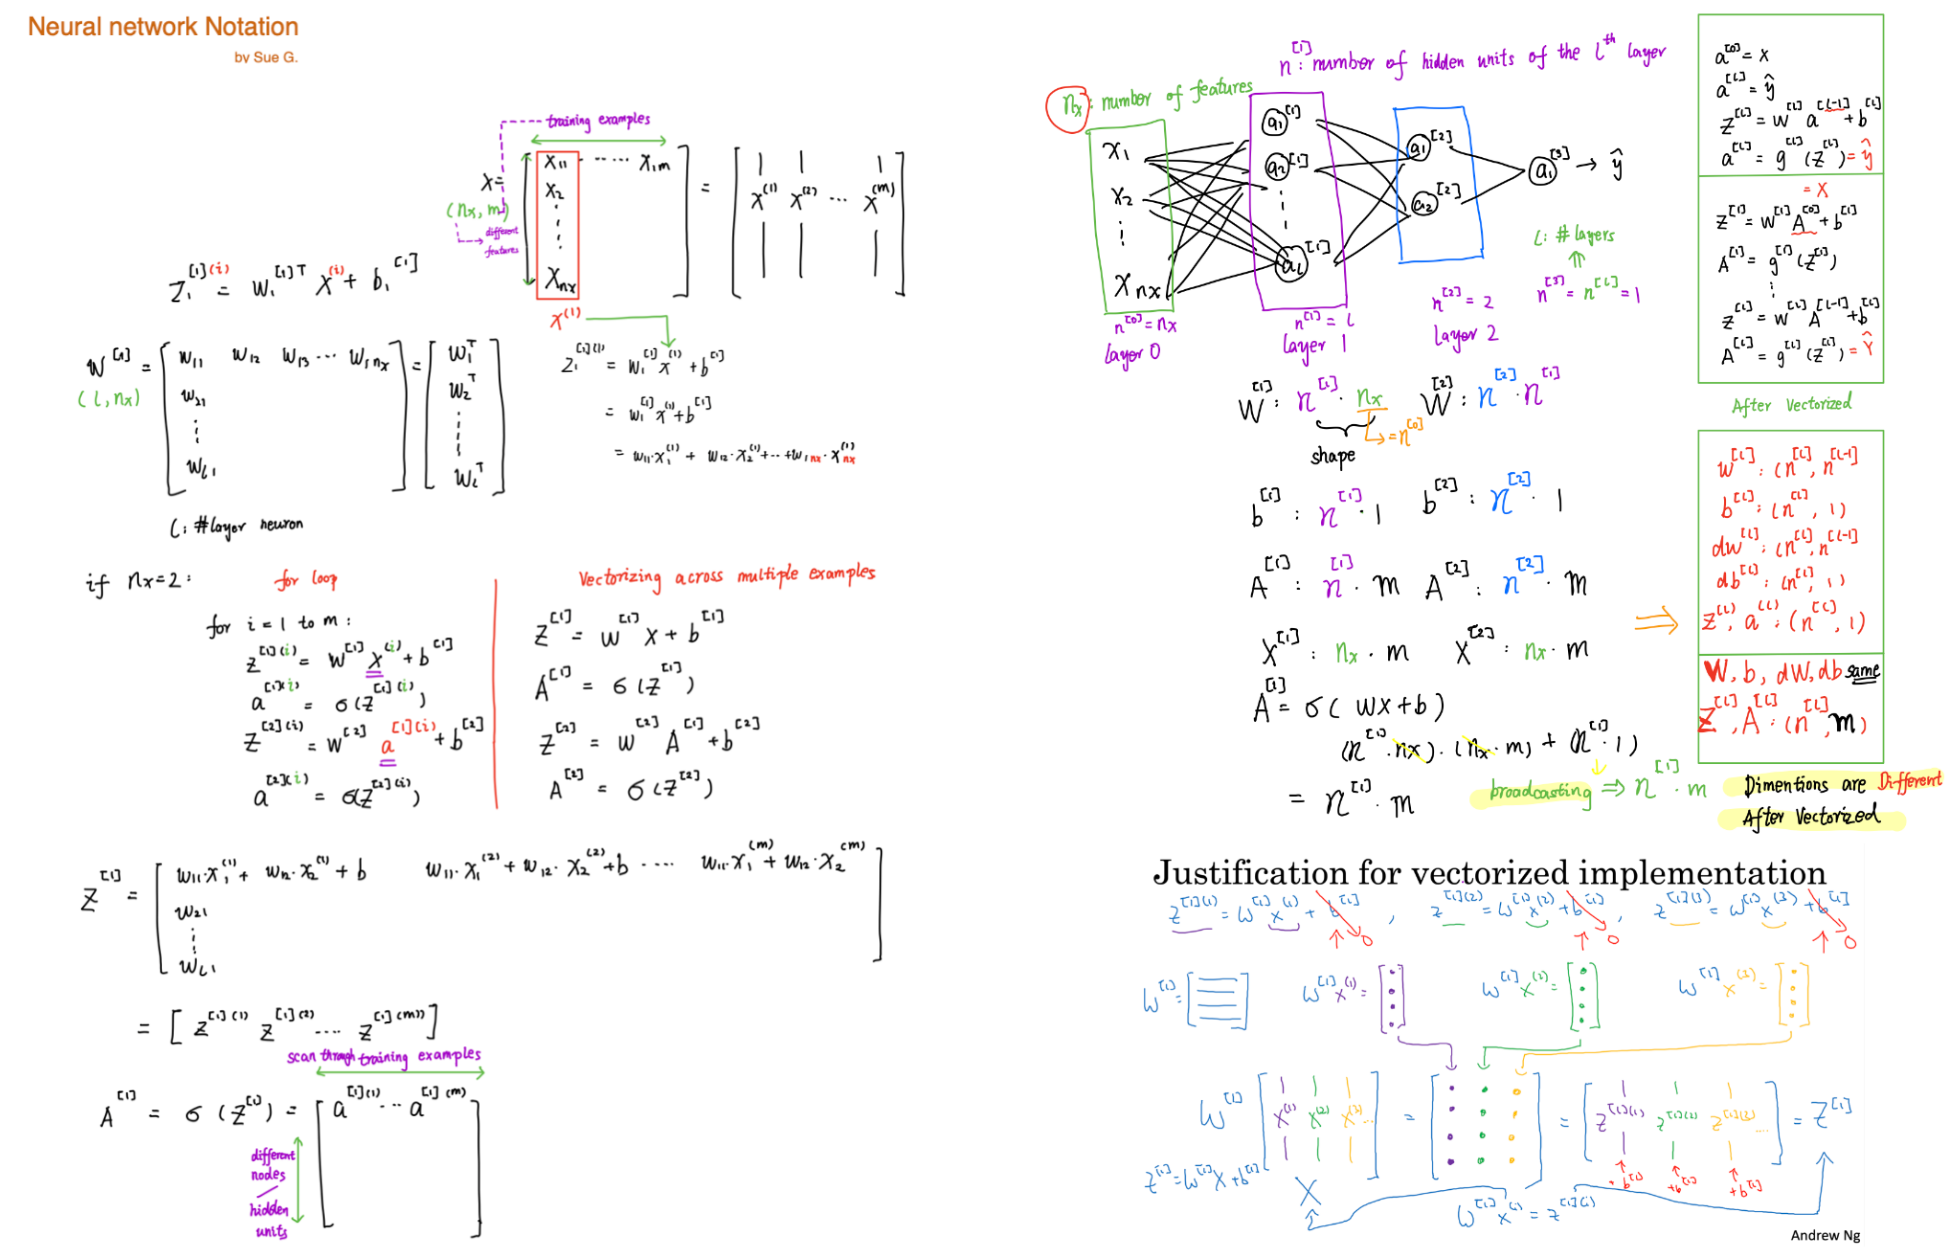 Neural network Notation
by Sue G.
training examples
X = [ x₁₁ ····· x₁m ] = [ x⁽¹⁾ x⁽²⁾ ··· x⁽ᵐ⁾ ]
(nx, m)
x₂
different
features
xnx
x⁽¹⁾
Z₁^[1](i) = W₁^[1]T X^(i) + b₁^[1]
W^[1] = [ w₁₁ w₁₂ w₁₃ ··· w₁nx ] = [ w₁ᵀ
(l, nx)
w₂₁
w₂ᵀ
wl1
wlᵀ ]
Z₁^[1](1) = W₁^[1] x^(1) + b^[1]
= w₁^[1] x^(1) + b^[1]
= w₁₁·x₁^(1) + w₁₂·x₂^(1) + ·· + w₁nx · xnx^(1)
l : #layer neuron
if nx=2 :
for loop
for i = 1 to m :
z^[1](i) = W^[1] x^(i) + b^[1]
a^[1](i) = σ(z^[1](i))
z^[2](i) = W^[2] a^[1](i) + b^[2]
a^[2](i) = σ(z^[2](i))
Vectorizing across multiple examples
Z^[1] = W^[1] X + b^[1]
A^[1] = σ(Z^[1])
Z^[2] = W^[2] A^[1] + b^[2]
A^[2] = σ(Z^[2])
Z^[1] = [ w₁₁·x₁^(1) + w₁₂·x₂^(1) + b w₁₁·x₁^(2) + w₁₂·x₂^(2) + b ···· w₁₁·x₁^(m) + w₁₂·x₂^(m)
w₂₁
wl1 ]
= [ z^[1](1) z^[1](2) ···· z^[1](m) ]
scan through training examples
A^[1] = σ(Z^[1]) = [ a^[1](1) ··· a^[1](m) ]
different
nodes
/
hidden
units
n^[1] : number of hidden units of the lᵗʰ layer
nx : number of features
x₁
x₂
xnx
a₁^[1]
a₂^[1]
al^[1]
a₁^[2]
a₂^[2]
a₁^[3] → ŷ
L : # layers
⇑
n^[3] = n^[L] = 1
n^[0] = nx
layer 0
n^[1] = l
layer 1
n^[2] = 2
layer 2
W^[1] : n^[1] · nx W^[2] : n^[2] · n^[1]
→ = n^[0]
shape
b^[1] : n^[1] · 1 b^[2] : n^[2] · 1
A^[1] : n^[1] · m A^[2] : n^[2] · m
X^[1] : nx · m X^[2] : nx · m
A^[1] = σ( WX + b)
(n^[1] · nx) · (nx · m) + (n^[1] · 1)
= n^[1] · m
broadcasting ⇒ n^[1] · m
a^[0] = x
a^[L] = ŷ
z^[l] = W^[l] a^[l-1] + b^[l]
a^[L] = g^[L](z^[L]) = ŷ
= X
Z^[1] = W^[1] A^[0] + b^[1]
A^[1] = g^[1](Z^[1])
Z^[L] = W^[L] A^[L-1] + b^[L]
A^[L] = g^[L](Z^[L]) = Ŷ
After Vectorized
W^[l] : (n^[l], n^[l-1]
b^[l] : (n^[l], 1)
dW^[l] : (n^[l], n^[l-1]
db^[l] : (n^[l], 1)
⇒
z^(l), a^(l) : (n^[l], 1)
W, b, dW, db same
Z^[l], A^[l] : (n^[l], m)
Dimentions are Different
After Vectorized
Justification for vectorized implementation
z^[1](1) = W^[1] x^(1) + b^[1] , z^[1](2) = W^[1] x^(2) + b^[1] , z^[1](3) = W^[1] x^(3) + b^[1]
0 0 0
W^[1] = [ ] W^[1] x^(1) = [ ] W^[1] x^(2) = [ ] W^[1] x^(3) = [ ]
W^[1] [ x^(1) x^(2) x^(3) ... ] = [ ] = [ z^[1](1) z^[1](2) z^[1](3) .... ] = Z^[1]
z^[1] = W^[1] X + b^[1]
+b^[1] +b^[1] +b^[1]
X
W^[1] x^(i) = z^[1](i)
Andrew Ng